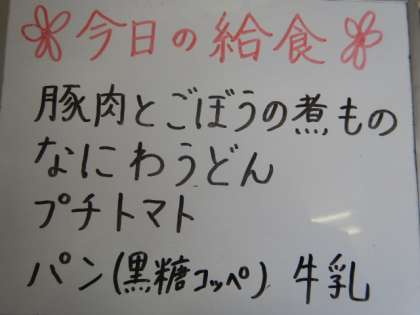 今日の給食
豚肉とごぼうの煮もの
なにわうどん
プチトマト
パン(黒糖コッペ) 牛乳